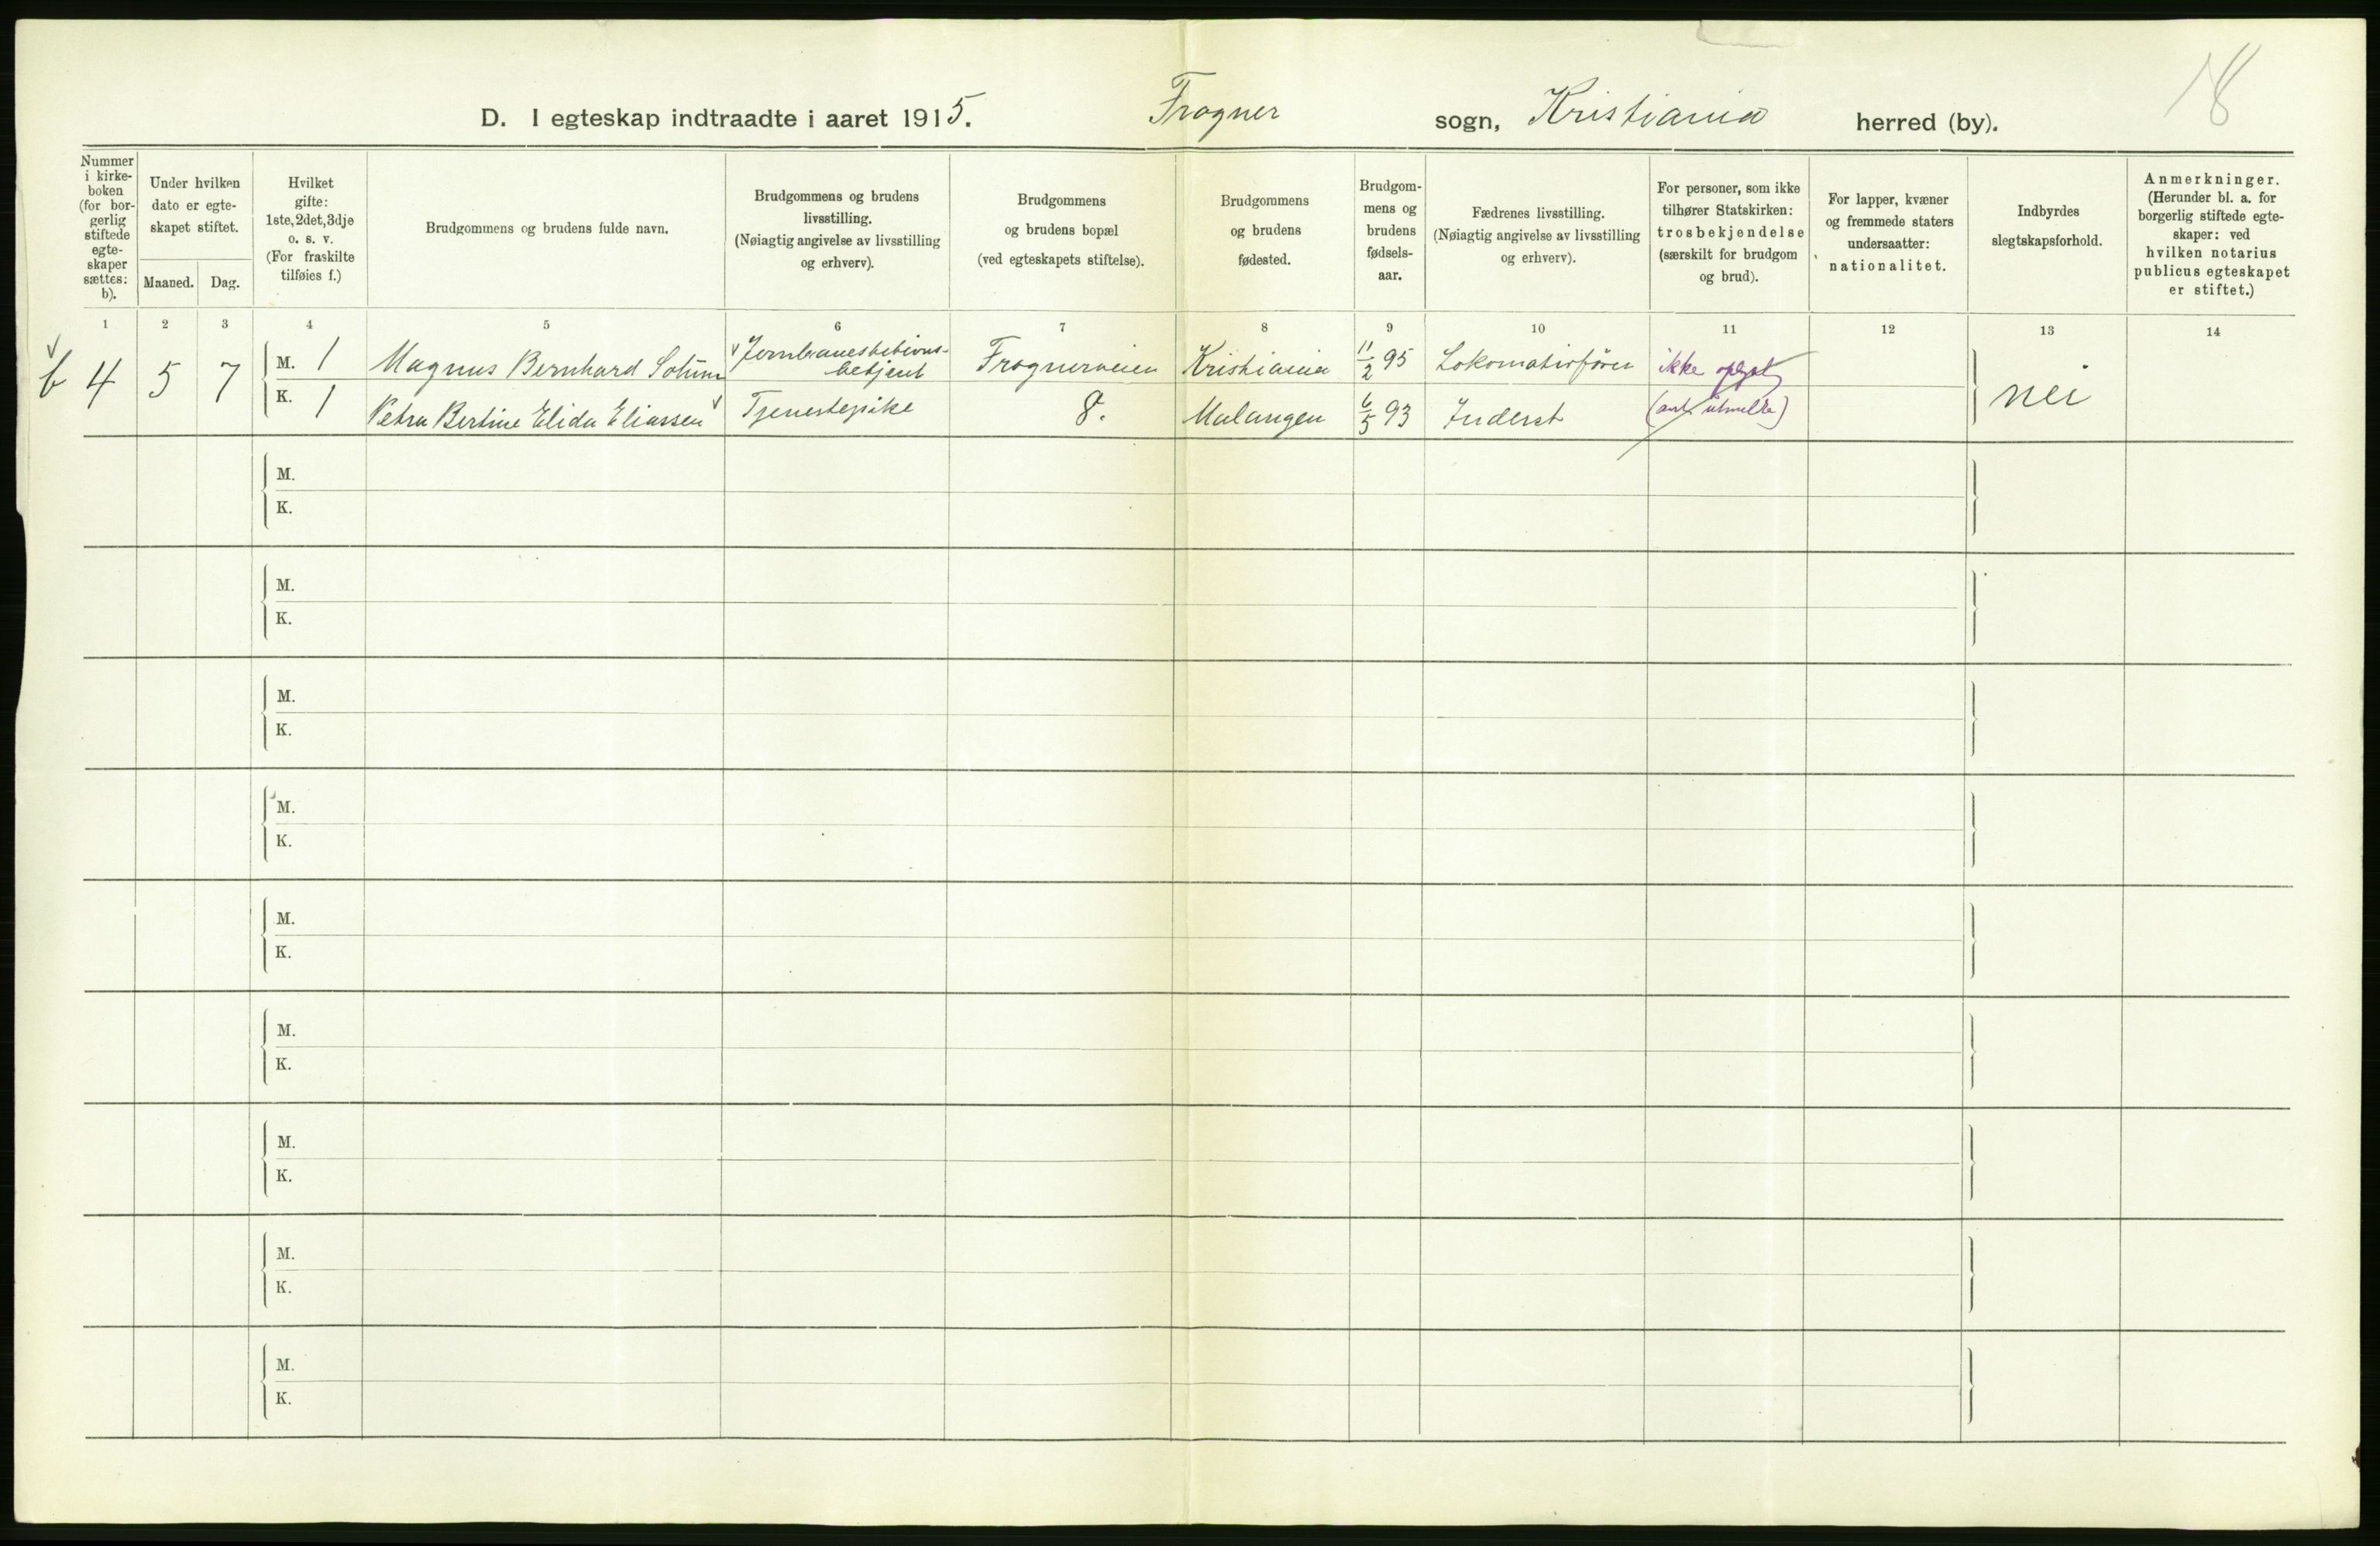 18
D. I egteskap indtraadte i aaret 1915. Frogner sogn, Kristiania herred (by).
Nummer i kirke-boken (for bor-gerlig stiftede egte-skaper sættes: b).
Under hvilken dato er egte-skapet stiftet.
Maaned. Dag.
Hvilket gifte: 1ste, 2det, 3dje o. s. v. (For fraskilte tilføies f.)
Brudgommens og brudens fulde navn.
Brudgommens og brudens livsstilling. (Nøiagtig angivelse av livsstilling og erhverv).
Brudgommens og brudens bopæl (ved egteskapets stiftelse).
Brudgommens og brudens fødested.
Brudgom-mens og brudens fødsels-aar.
Fædrenes livsstilling. (Nøiagtig angivelse av livsstilling og erhverv).
For personer, som ikke tilhører Statskirken: trosbekjendelse (særskilt for brudgom og brud).
For lapper, kvæner og fremmede staters undersaatter: nationalitet.
Indbyrdes slegtskapsforhold.
Anmerkninger. (Herunder bl. a. for borgerlig stiftede egte-skaper: ved hvilken notarius publicus egteskapet er stiftet.)
1 2 3 4 5 6 7 8 9 10 11 12 13 14
b 4 5 7 M. 1 Magnus Bernhard Jernbanestations-betjent Frognerveien Kristiania 11/2 95 Lokomotivfører ikke oplyst nei
K. 1 Petra Bertine Elida Eliassen Tjenestepike 8. Malangen 6/5 93 Inderst (ant. utmeldte)
M.
K.
M.
K.
M.
K.
M.
K.
M.
K.
M.
K.
M.
K.
M.
K.
M.
K.